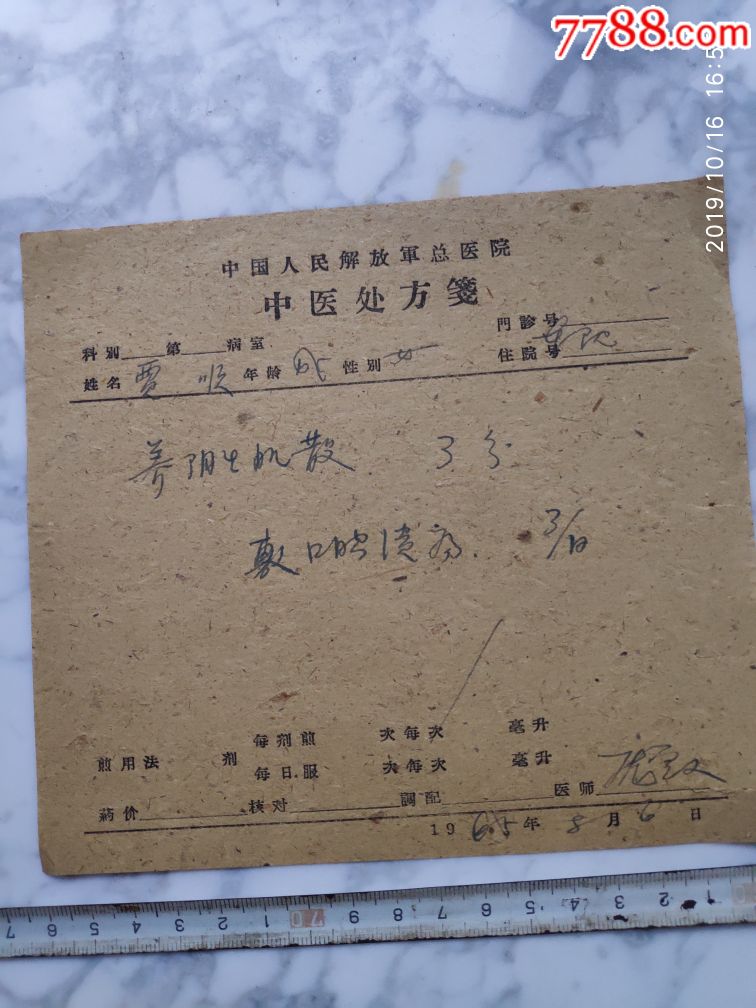 7788.com
2019/10/16 16:5
中国人民解放軍总医院
中医处方箋
科别 第 病室 門診号
姓名 贾 顺 年龄 成 性别 女 住院号
养阴生肌散 3分
敷口腔溃疡. 3/日
煎用法 剂 每剂煎 次每次 毫升
每日服 次每次 毫升
葯价 核对 調配 医师
1965年 8月 6日
7 6 5 4 3 2 1 70 9 8 7 6 5 4 3 2 1